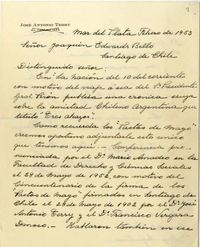 José Antonio Terry
Mar del Plata Febrero de 1953
Señor Joaquin Edwards Bello
Santiago de Chile
Distinguido señor
En "La Nación" del 10 del corriente
con motivo del viaje a esa del Presidente
Gral Perón publica una crónica suya
sobre la amistad Chileno Argentina que
titula "Tres abajo".
Como recuerda los "Pactos de Mayo"
creemos oportuno adjuntarle la única
que tenemos aqui – Conferencia
pronunciada por el Dr Mario Amadeo en la
Facultad de Derecho y Ciencias Sociales
el 28 de Mayo de 1952, con motivo del
Cincuentenario de la firma de los
Pactos de Mayo, firmados en Santiago de
Chile el 28 de Mayo de 1902 por el Dr José
Antonio Terry y el Dr Francisco Vergara
Donoso – Hablaron también en ese